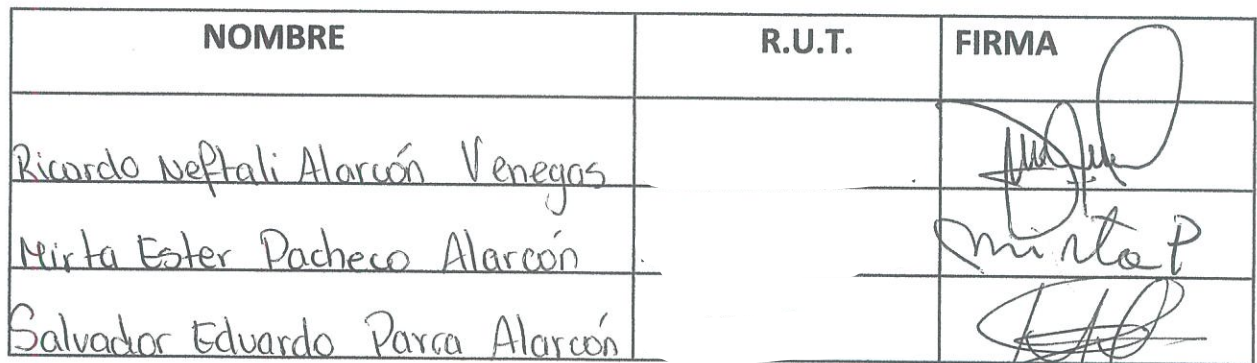 NOMBRE R.U.T. FIRMA
Ricardo Neftali Alarcón Venegas
Mirta Ester Pacheco Alarcón mirta P
Salvador Eduardo Parra Alarcón